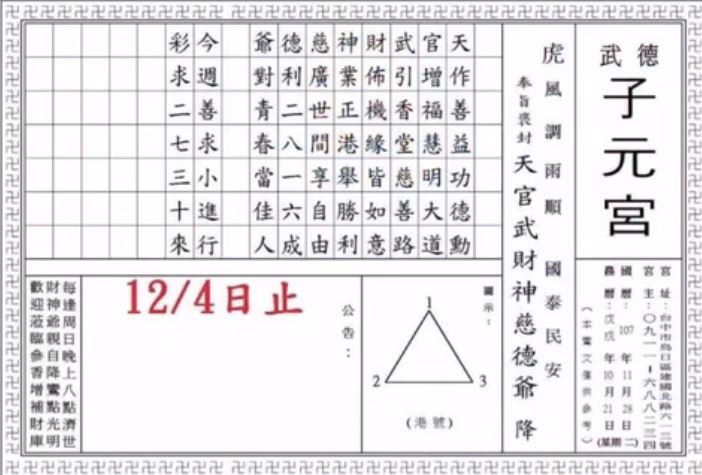 武德
子元宮
宮址:台中市烏日區建國北路六一三號
宮主:〇九一一-六八八二三四
國曆:107年11月28日(星期二)
農曆:戊戌年10月21日
(本鸞文僅供參考)
虎風調雨順 國泰民安
奉旨褒封 天官武財神慈德爺 降
天作善益功德勳
官增福慧明大道
武引香堂慈善路
財佈機緣皆如意
神業正港舉勝利
慈廣世間享自由
德利二八一六成
爺對青春當佳人
今週善求小進行
彩求二七三十來
圖示:
1
2
3
(港號)
公告:
12/4日止
每逢周日晚上八點濟世
財神爺親自降鸞點光明
歡迎蒞臨參香增補財庫